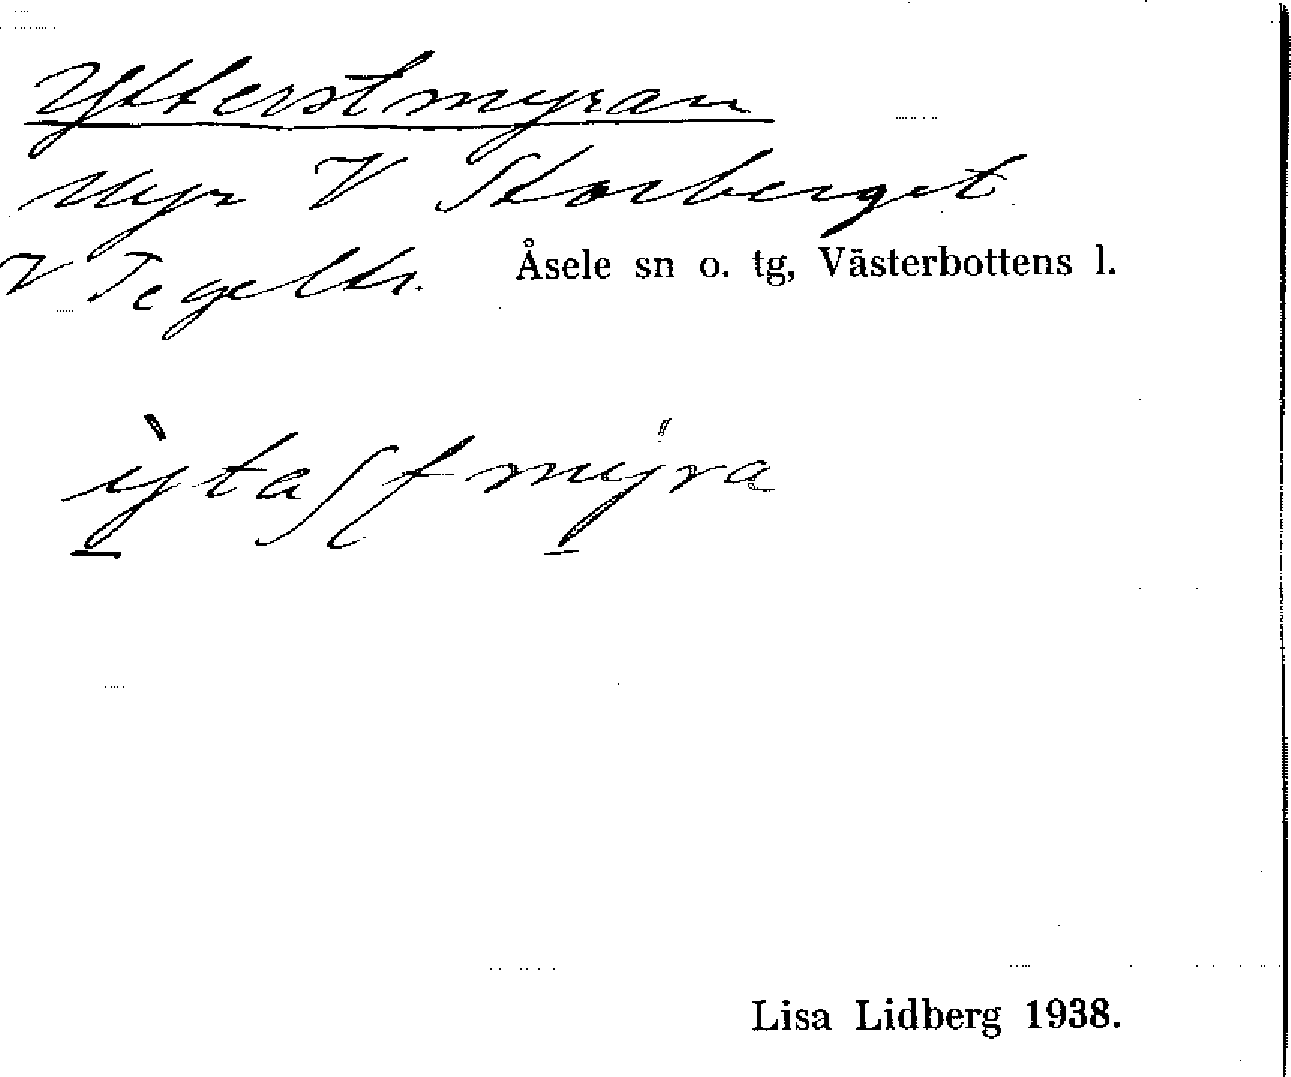 Ytterstmyran
Myr V Storberget
V Tegeltr. Åsele sn o. tg, Västerbottens l.
ỳtaʃtmýra
Lisa Lidberg 1938.